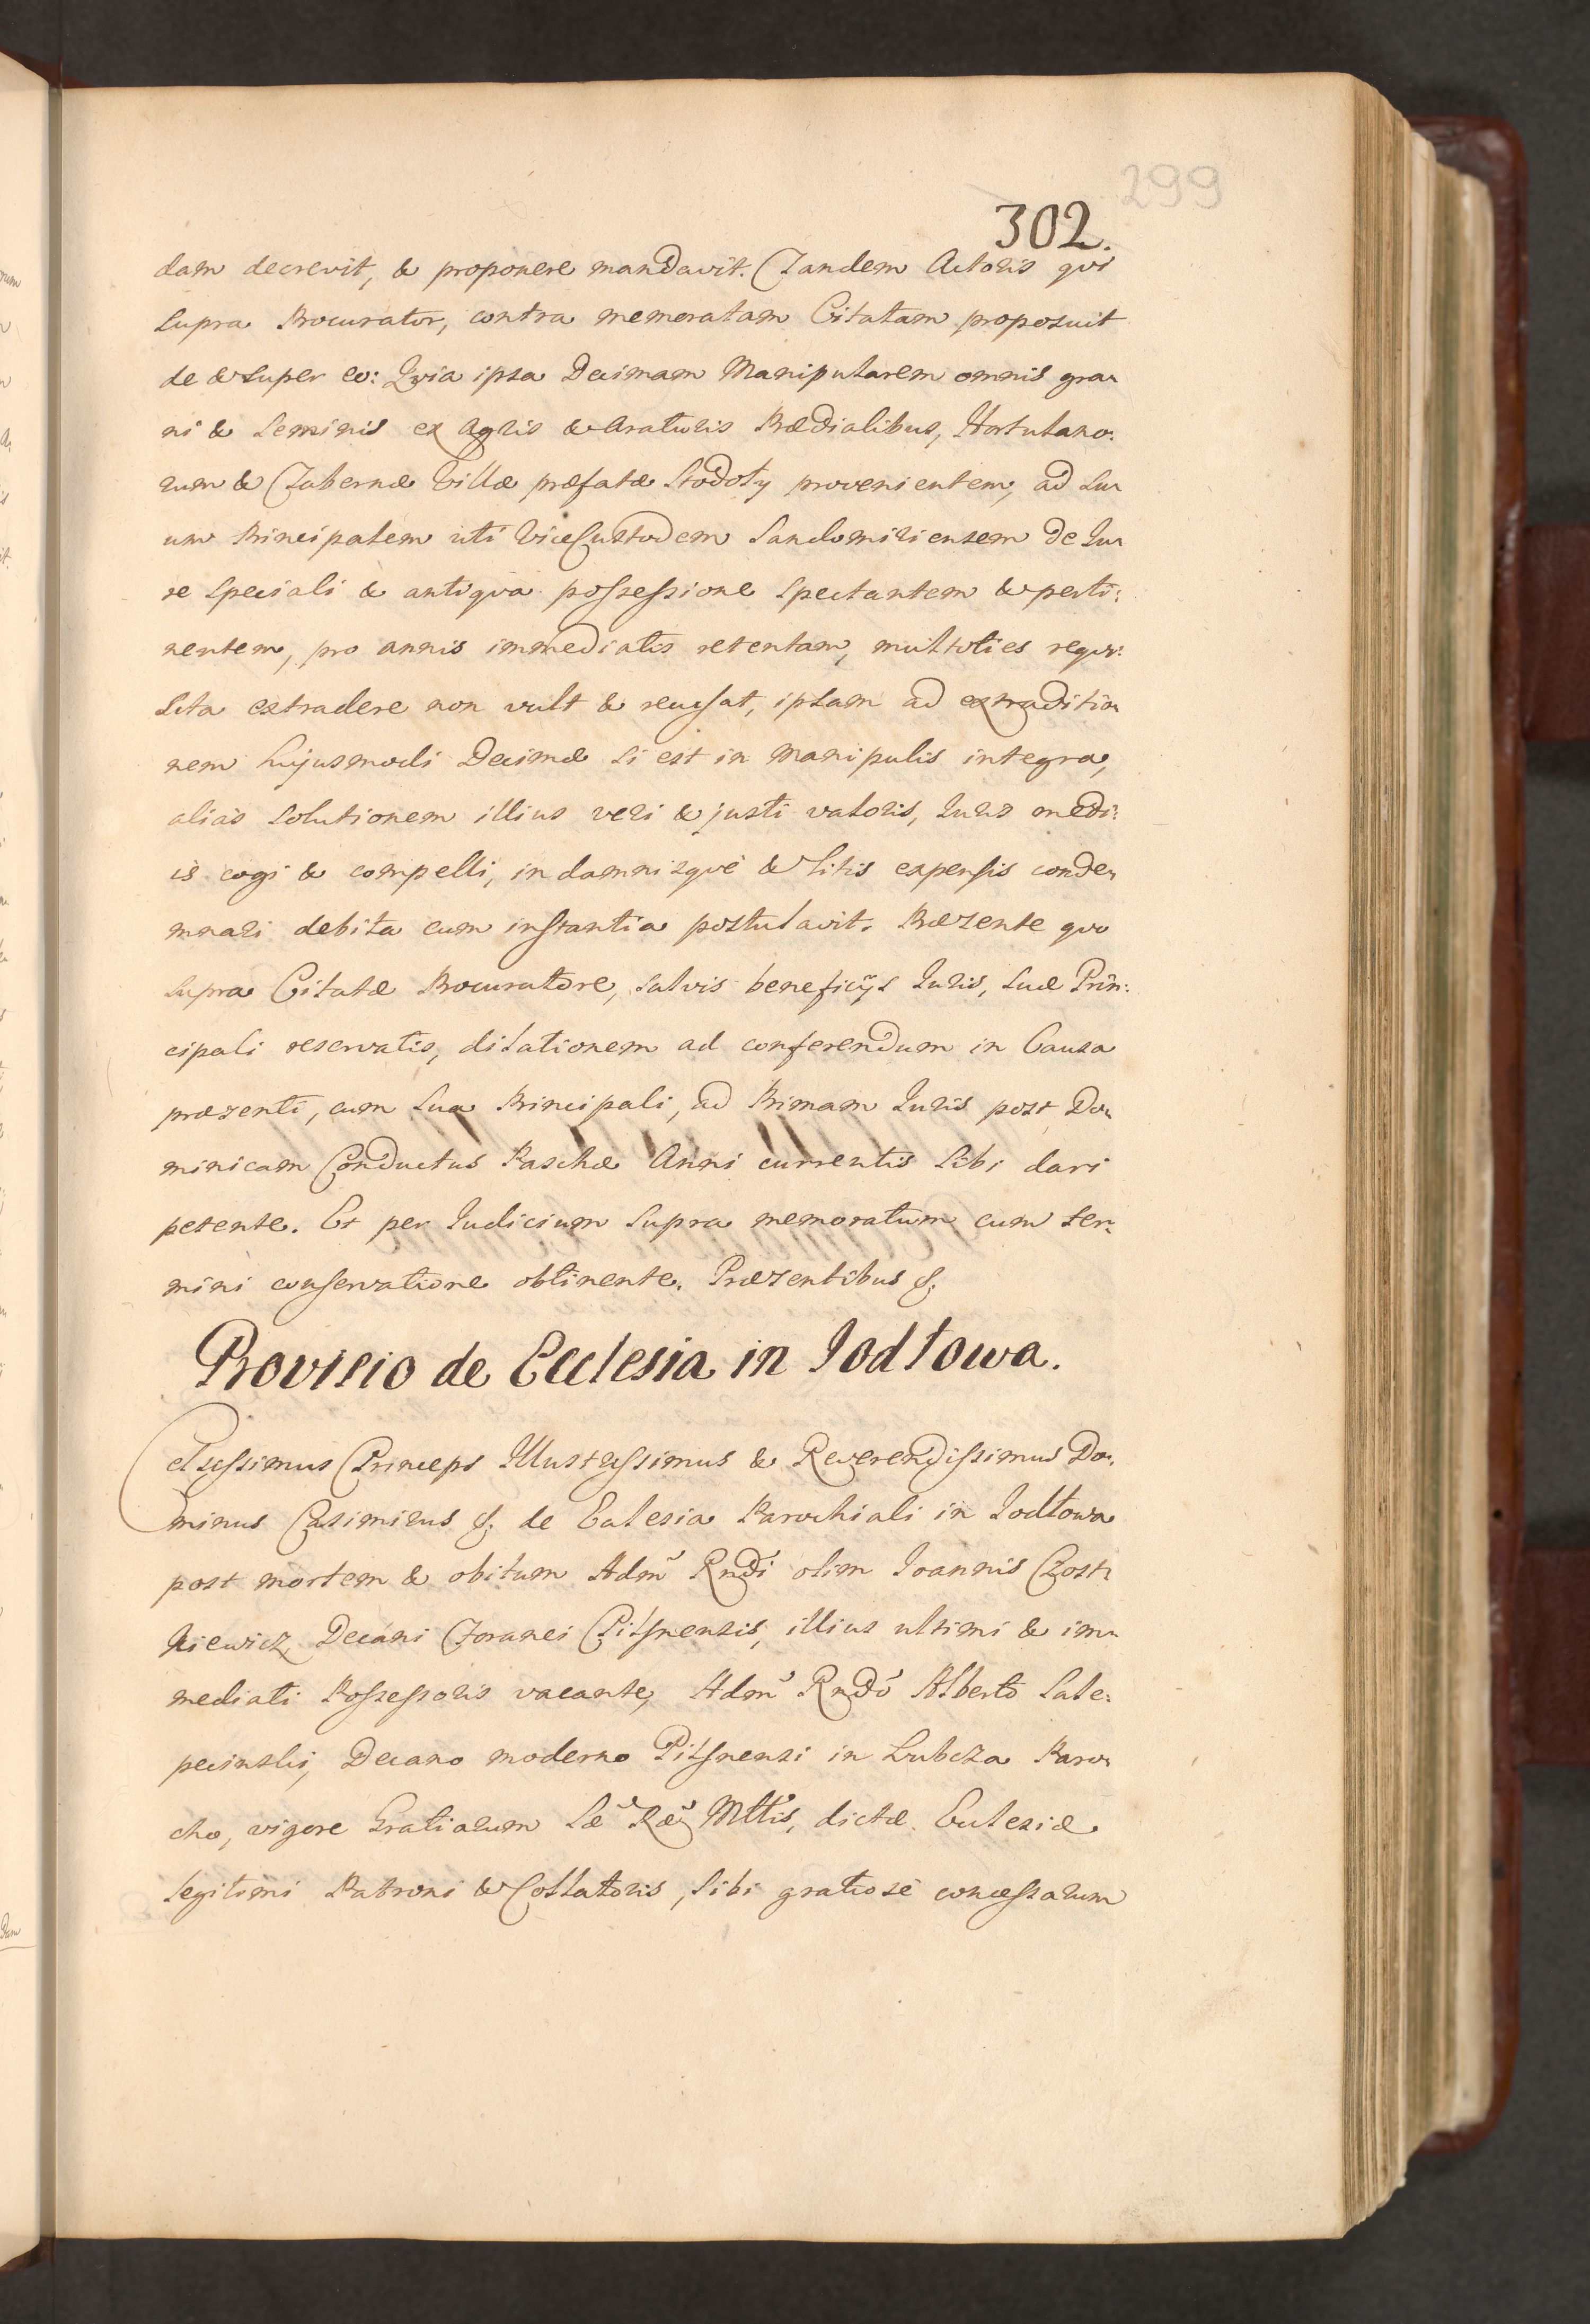 299
302.
dam decrevit, & proponere mandavit. Tandem Actoris qvi
supra Procurator, contra memoratam Citatam proposuit
de & super eo: Qvia ipsa Decimam Manipularem omnis gra-
ni & Seminis ex Agris & Araturis Prædialibus, Hortulano:
rum & Tabernæ Villæ præfatæ Stodoły provenientem, ad Su-
um Principalem uti ViceCustodem Sandomiriensem de Ju-
re speciali & antiqva possessione spectantem & perti:
nentem, pro annis immediatis retentam, multoties reqvi:
sita extradere non vult & recusat, ipsam ad extraditio-
nem hujusmodi Decimæ si est in Manipulis integra,
alias solutionem illius veri & justi valoris, Juris medi:
is cogi & compelli, in damnisqve & litis expensis conde-
mnari debita cum instantia postulavit. Præsente qvo
supra Citatæ Procuratore, salvis beneficijs Juris, suæ Prin:
cipali reservatis, dilationem ad conferendum in Causa
præsenti, cum sua Principali, ad Primam Juris post Do-
minicam Conductus Paschæ Anni currentis sibi dari
petente. Et per Judicium supra memoratum cum ter-
mini conservatione obtinente. Præsentibus &.
Provisio de Ecclesia in Jodłowa.
Celsissimus Princeps Illustrissimus & Reverendissimus Do-
minus Casimirus &. de Ecclesia Parochiali in Jodłowa
post mortem & obitum Adm Rndi olim Joannis Czost-
kiewicz Decani Foranei Pilsnensis, illius ultimi & im-
mediati Possessoris vacante, Adm Rndo Alberto Sale:
pecinski, Decano moderno Pilsnensi in Lubcza Paro-
cho, vigore Gratiarum Sæ Ræ Mttis, dictæ Ecclesiæ
legitimi Patroni & Collatoris, sibi gratiose concessarum